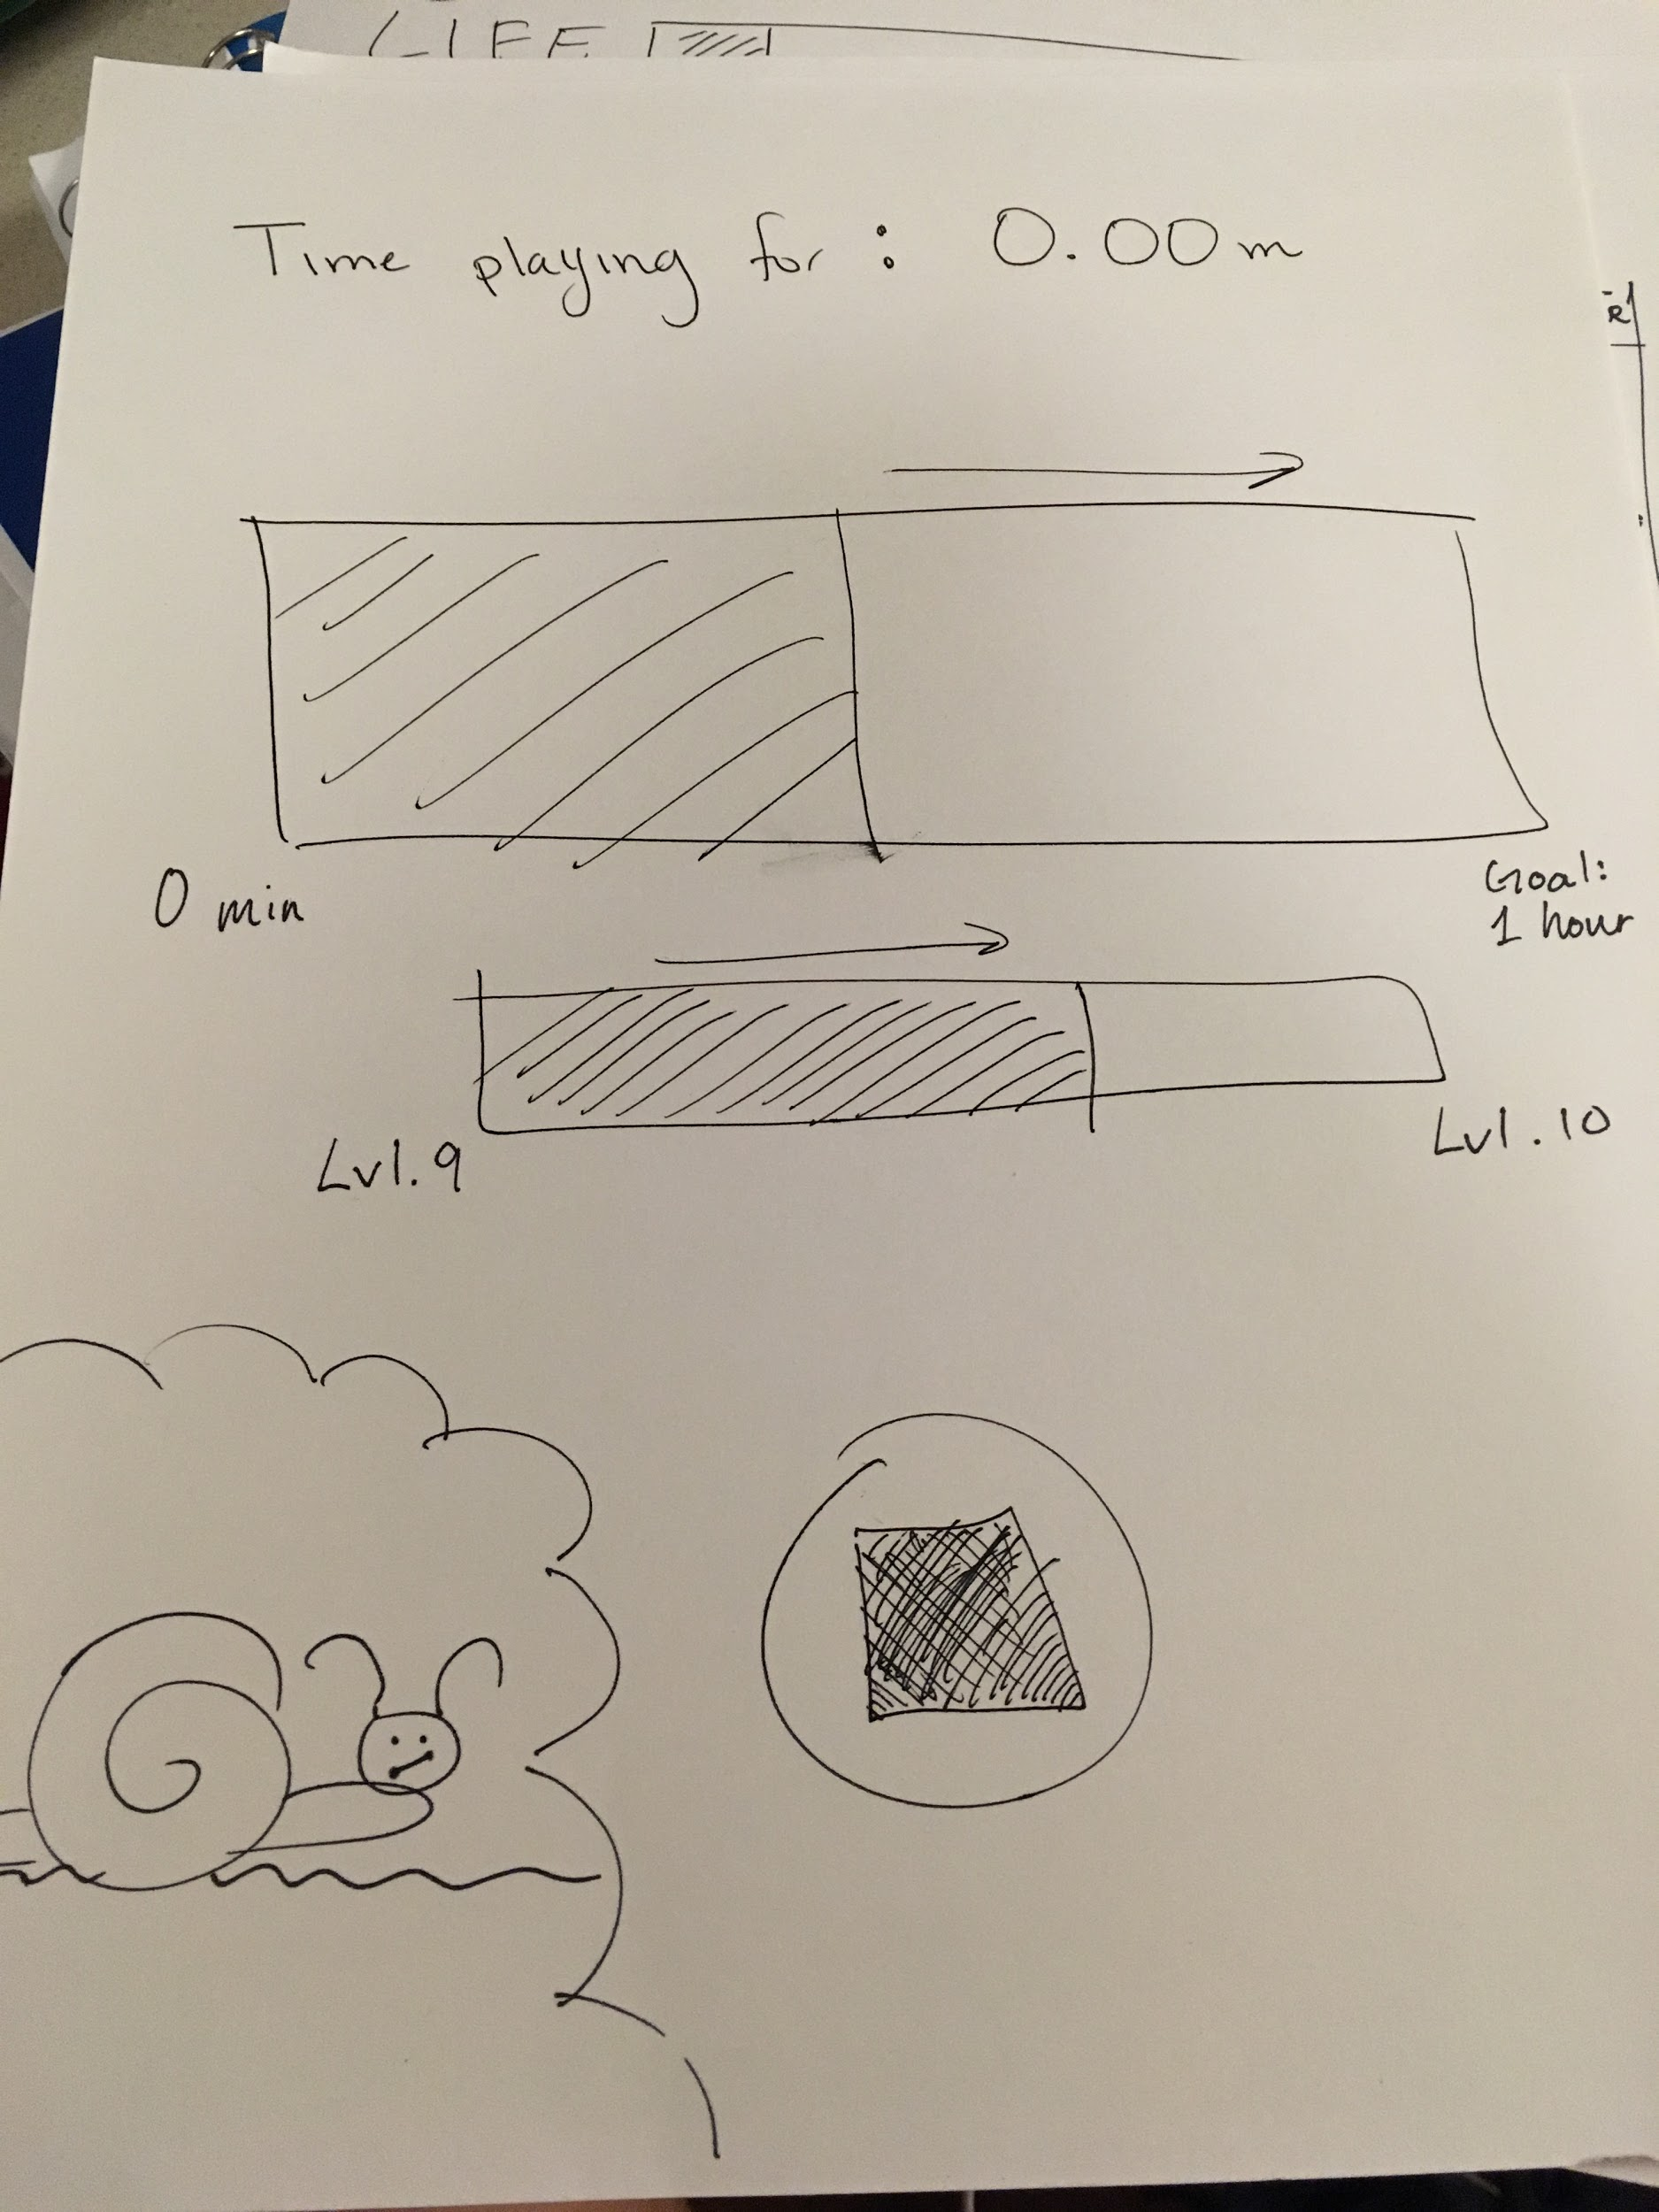 LIFE
Time playing for : 0.00m
0 min
Goal:
1 hour
Lvl. 9
Lvl. 10